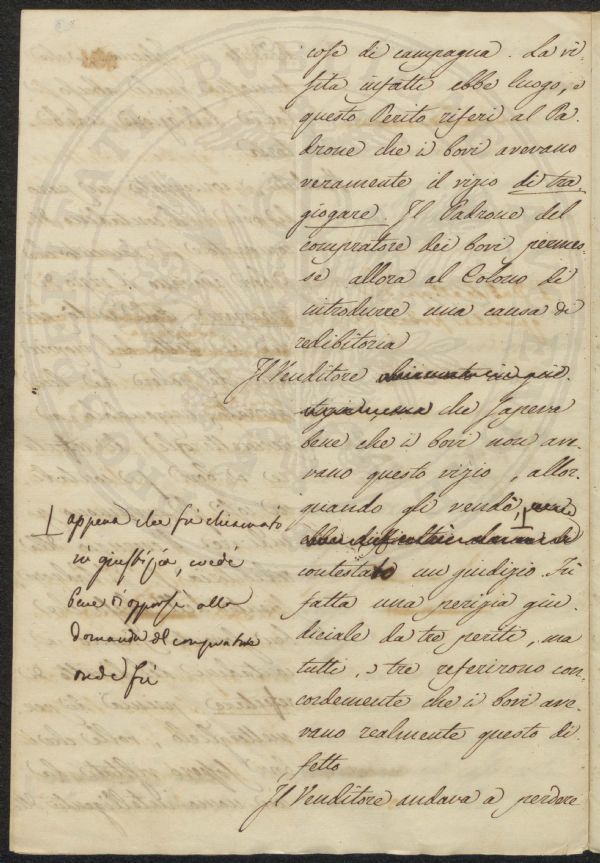 cose di campagna. La vi-
sita infatti ebbe luogo, e
questo Perito riferì al Pa-
drone che i bovi avevano
veramente il vizio di tra-
giogare. Il Padrone del
compratore dei bovi permes-
se allora al Colono di
introdurre una causa di
redibitoria
Il Venditore chiamato in giu-
stizia che sapeva
bene che i bovi non ave-
vano questo vizio, allor-
quando gli vendè,
contestato un giudizio. Fu
fatta una perizia giu-
diciale da tre periti, ma
tutti, e tre referirono con-
cordemente che i bovi ave-
vano realmente questo di-
fetto
Il Venditore andava a perdere
appena che fù chiamato
in giustizia,
bene s'oppose alla
domanda del compratore
onde fù